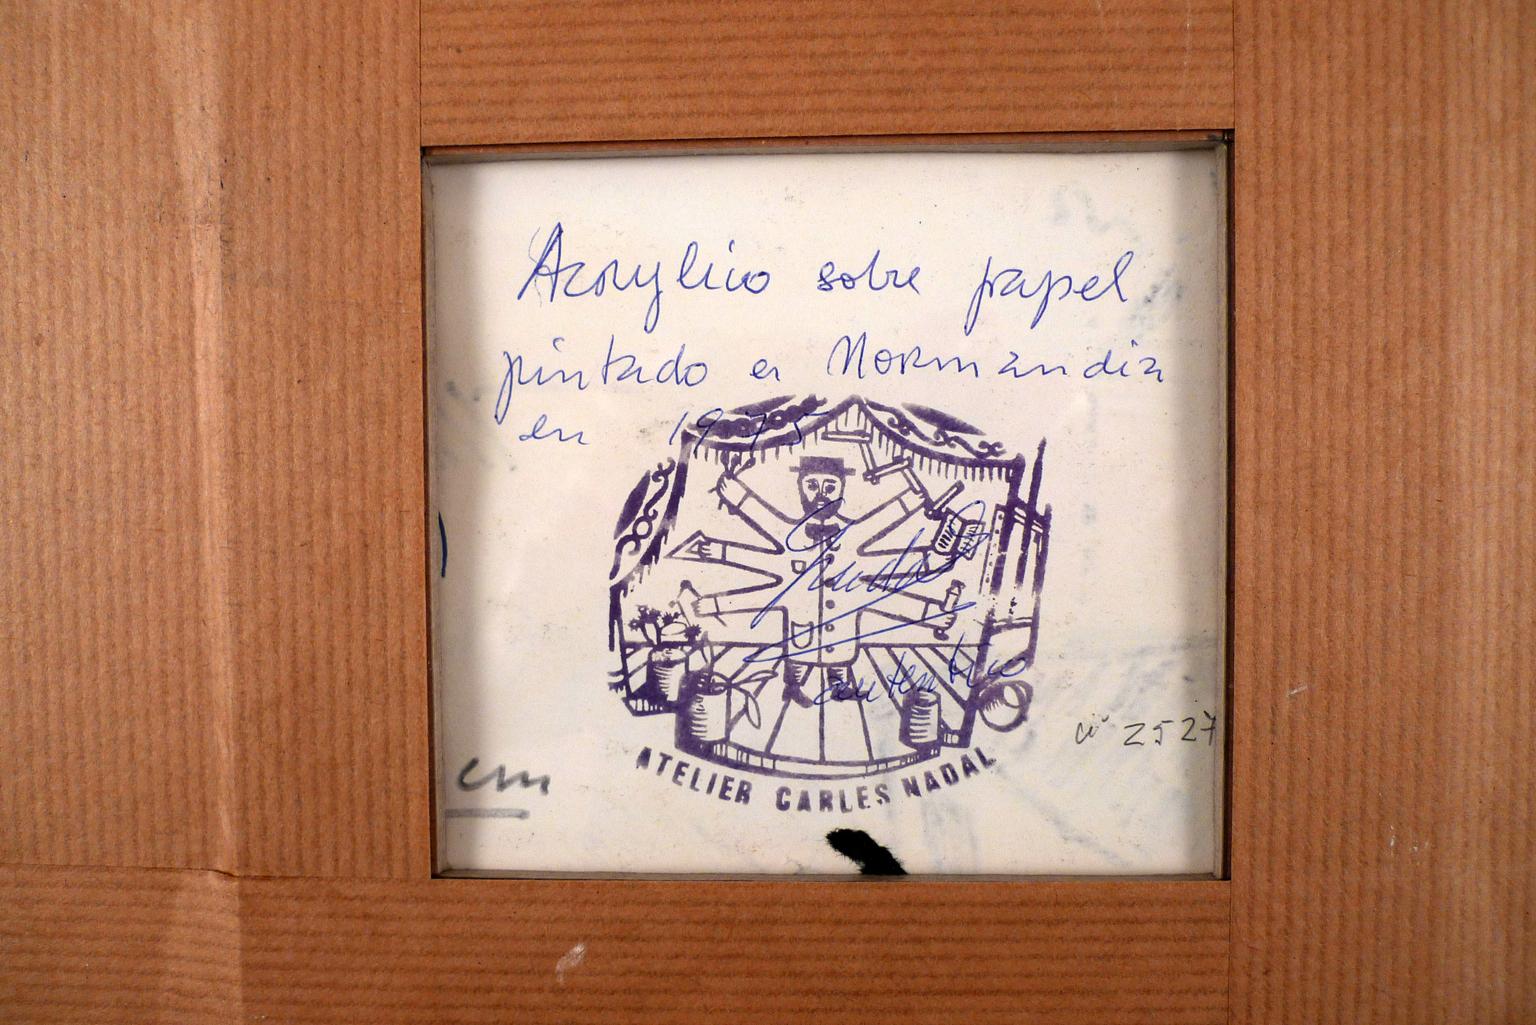 Acrylico sobre papel
pintado en Normandia
en 1975
autentico
nº 2527
cm
ATELIER CARLES NADAL